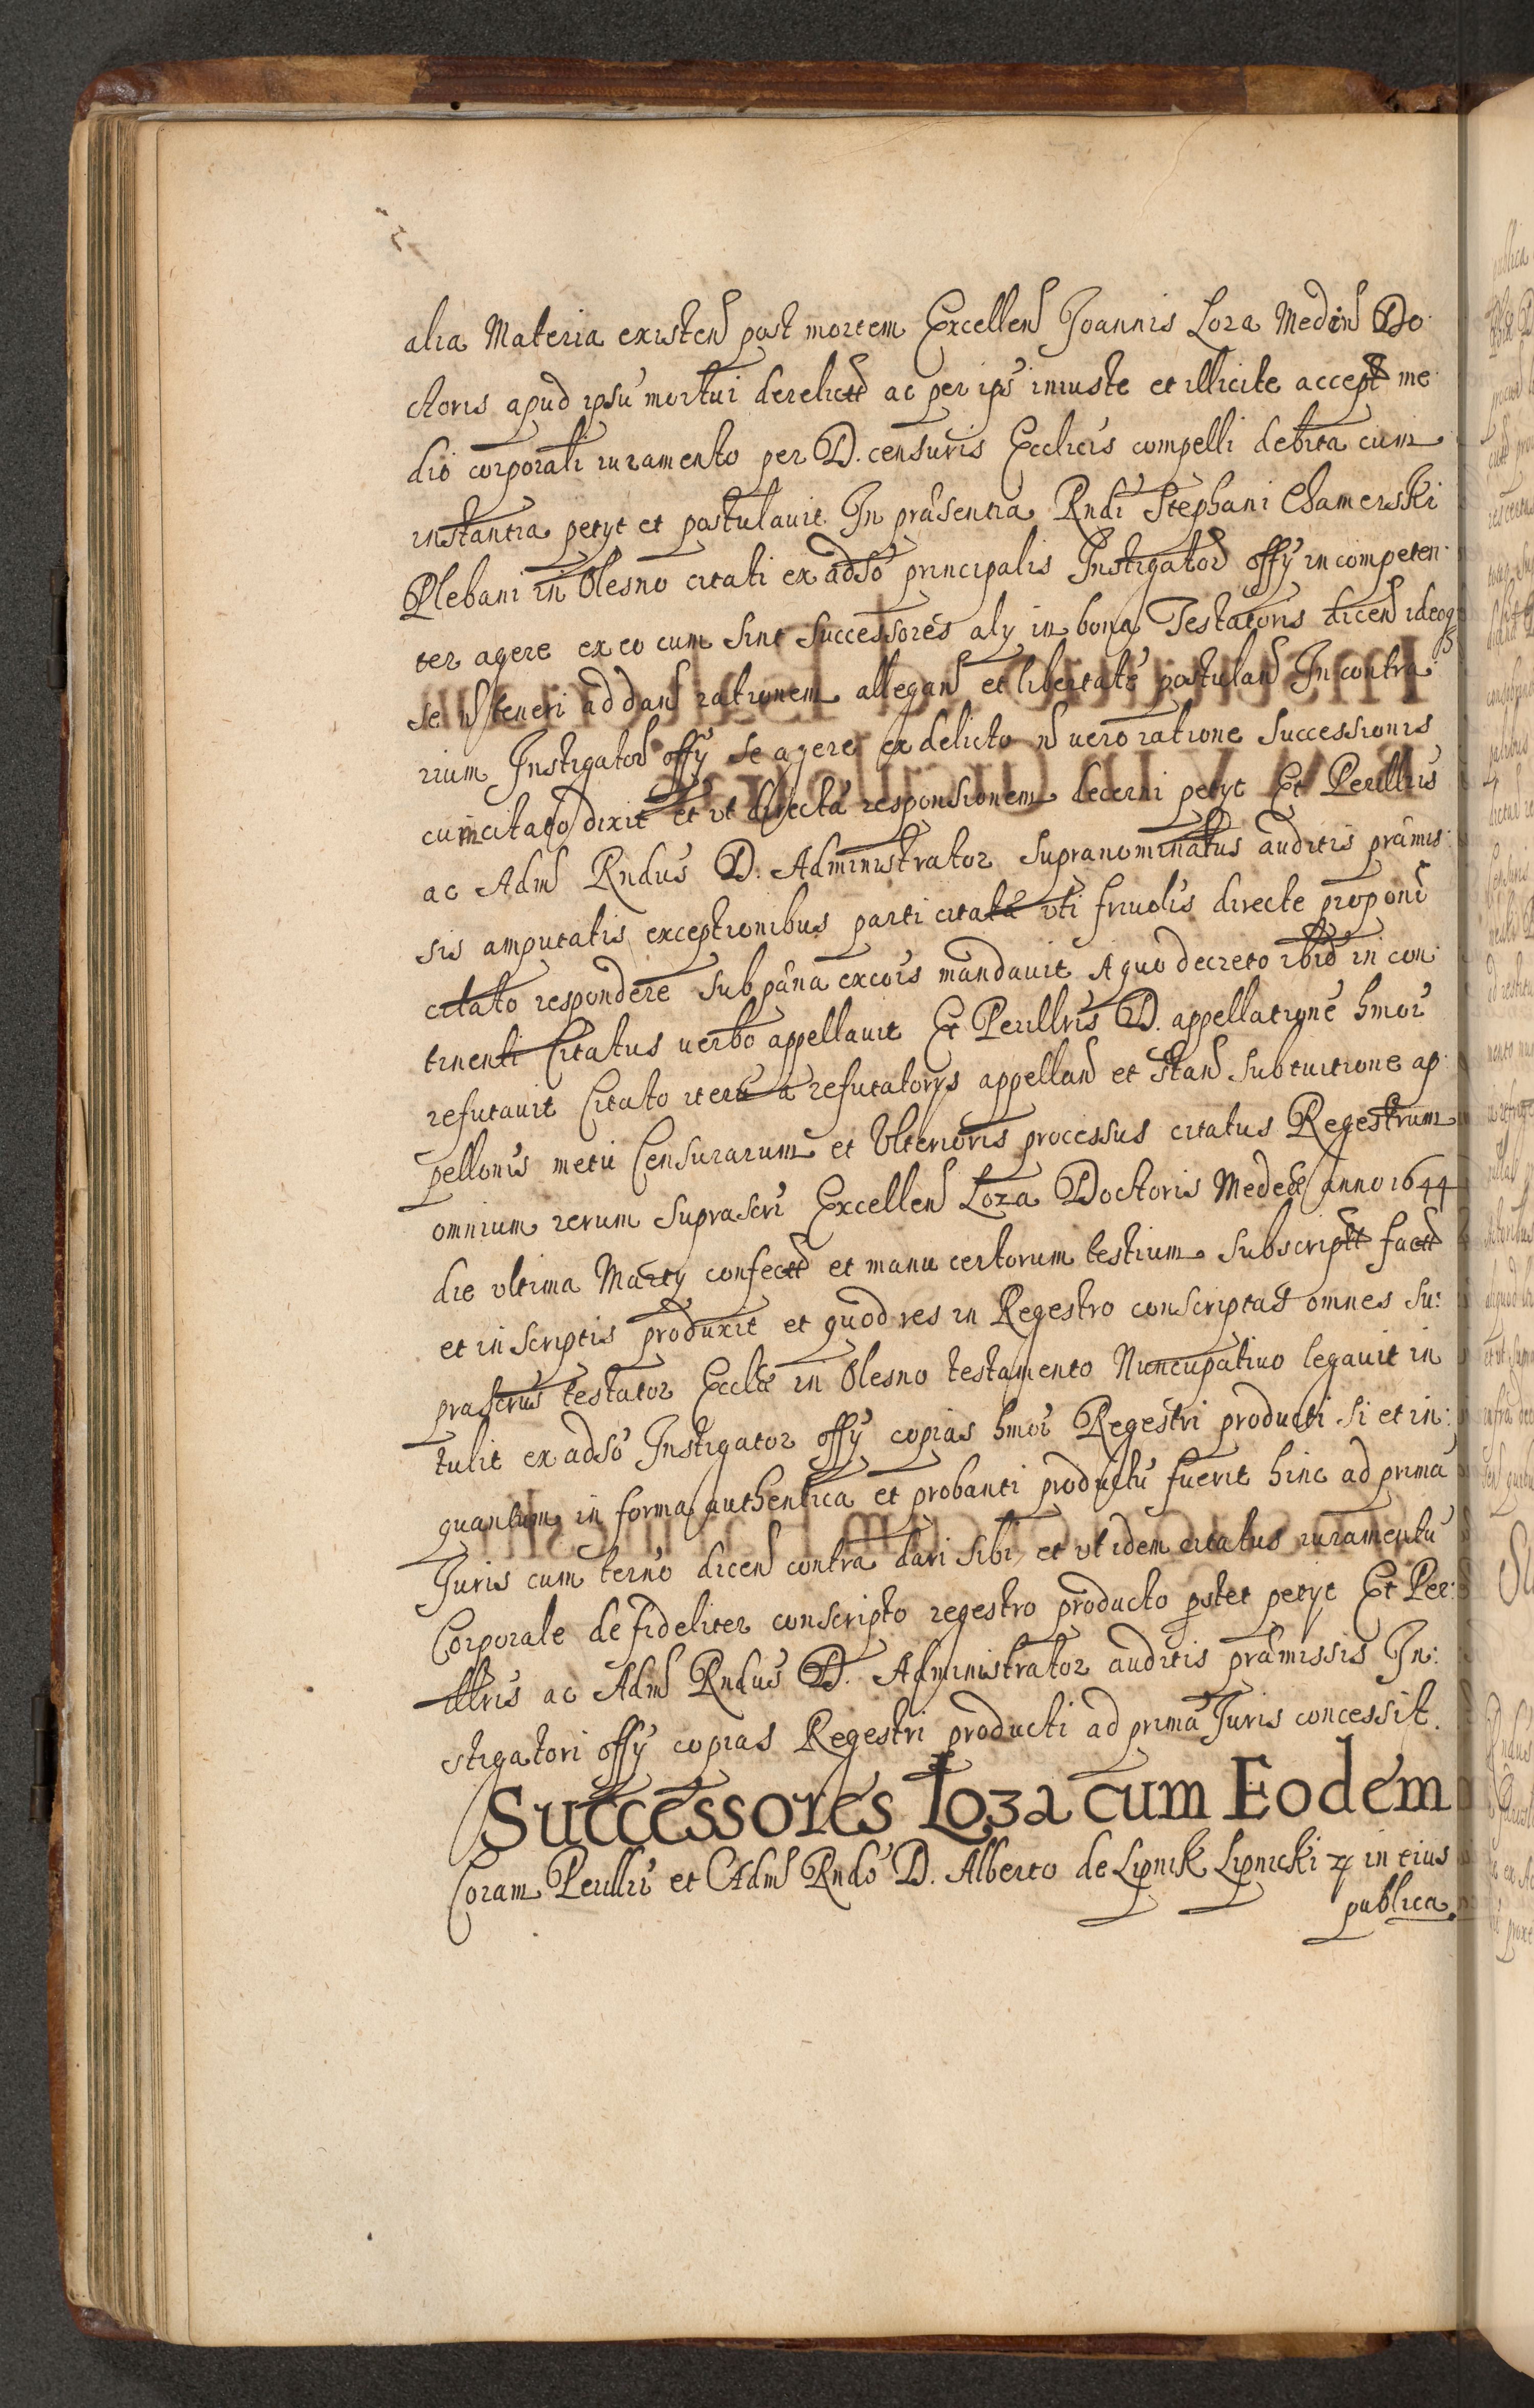 alia Materia existen post mortem Excellen Joannis Loza Medin Do
ctoris apud ipsũ mortui derelict ac per ips iniuste et illicite accept me
dio corporali iuramento per D. censuris Ecclicis compelli debita cum
instantia petyt et postulavit. In præsentia Rndi Stephani Chamerski
Plebani in Olesno citati ex adso principalis Instigator offy incompeten
ter agere ex eo cum sint successores aly in bona Testatoris dicen ideoq
se n teneri ad dan rationem allegan et libertatē postulan In contra
rium Instigator offy se agere ex delicto n vero ratione successionis
cum citato dixit et ut directa responsionem decerni petyt Et Perillris
ac Adm Rndus D. Administrator supranominatus auditis præmis
sis amputatis exceptionibus parti citatæ uti frivolis directe proponi
citato respondere sub pæna excois mandavit A quo decreto ibid in con
tinenti Citatus verbo appellavit Et Perillris D. appellatione hmoi
refutavit Citato iterũ a refutatorys appellan et stan sub tuitione ap
pellonis metu Censurarum et Ulterioris processus citatus Regestrum
omnium rerum suprascri Excellen Loza Doctoris Medcæ anno 1644
die ultima Marty confect et manu certorum testium subscript fact
et in scriptis produxit et quod res in Regestro conscriptas omnes su:
prascrius testator Ecclæ in Olesno testamento Nuncupativo legavit in
tulit ex adso Instigator offy copias hmoi Regestri producti si et in:
quantum in forma authentica et probanti productũ fuerit hinc ad prima
Juris cum terno dicen contra dari sibi et ut idem citatus iuramentũ
Corporale de fideliter conscripto regestro producto pstet petyt Et Per:
illris ac Adm Rndus D. Administrator auditis præmissis In:
stigatori offy copias Regestri producti ad prima Juris concessit.
Successores Loza cum Eodem
Coram Perillri et Adm Rndo D. Alberto de Lipnik Lipnicki in eius
publica.